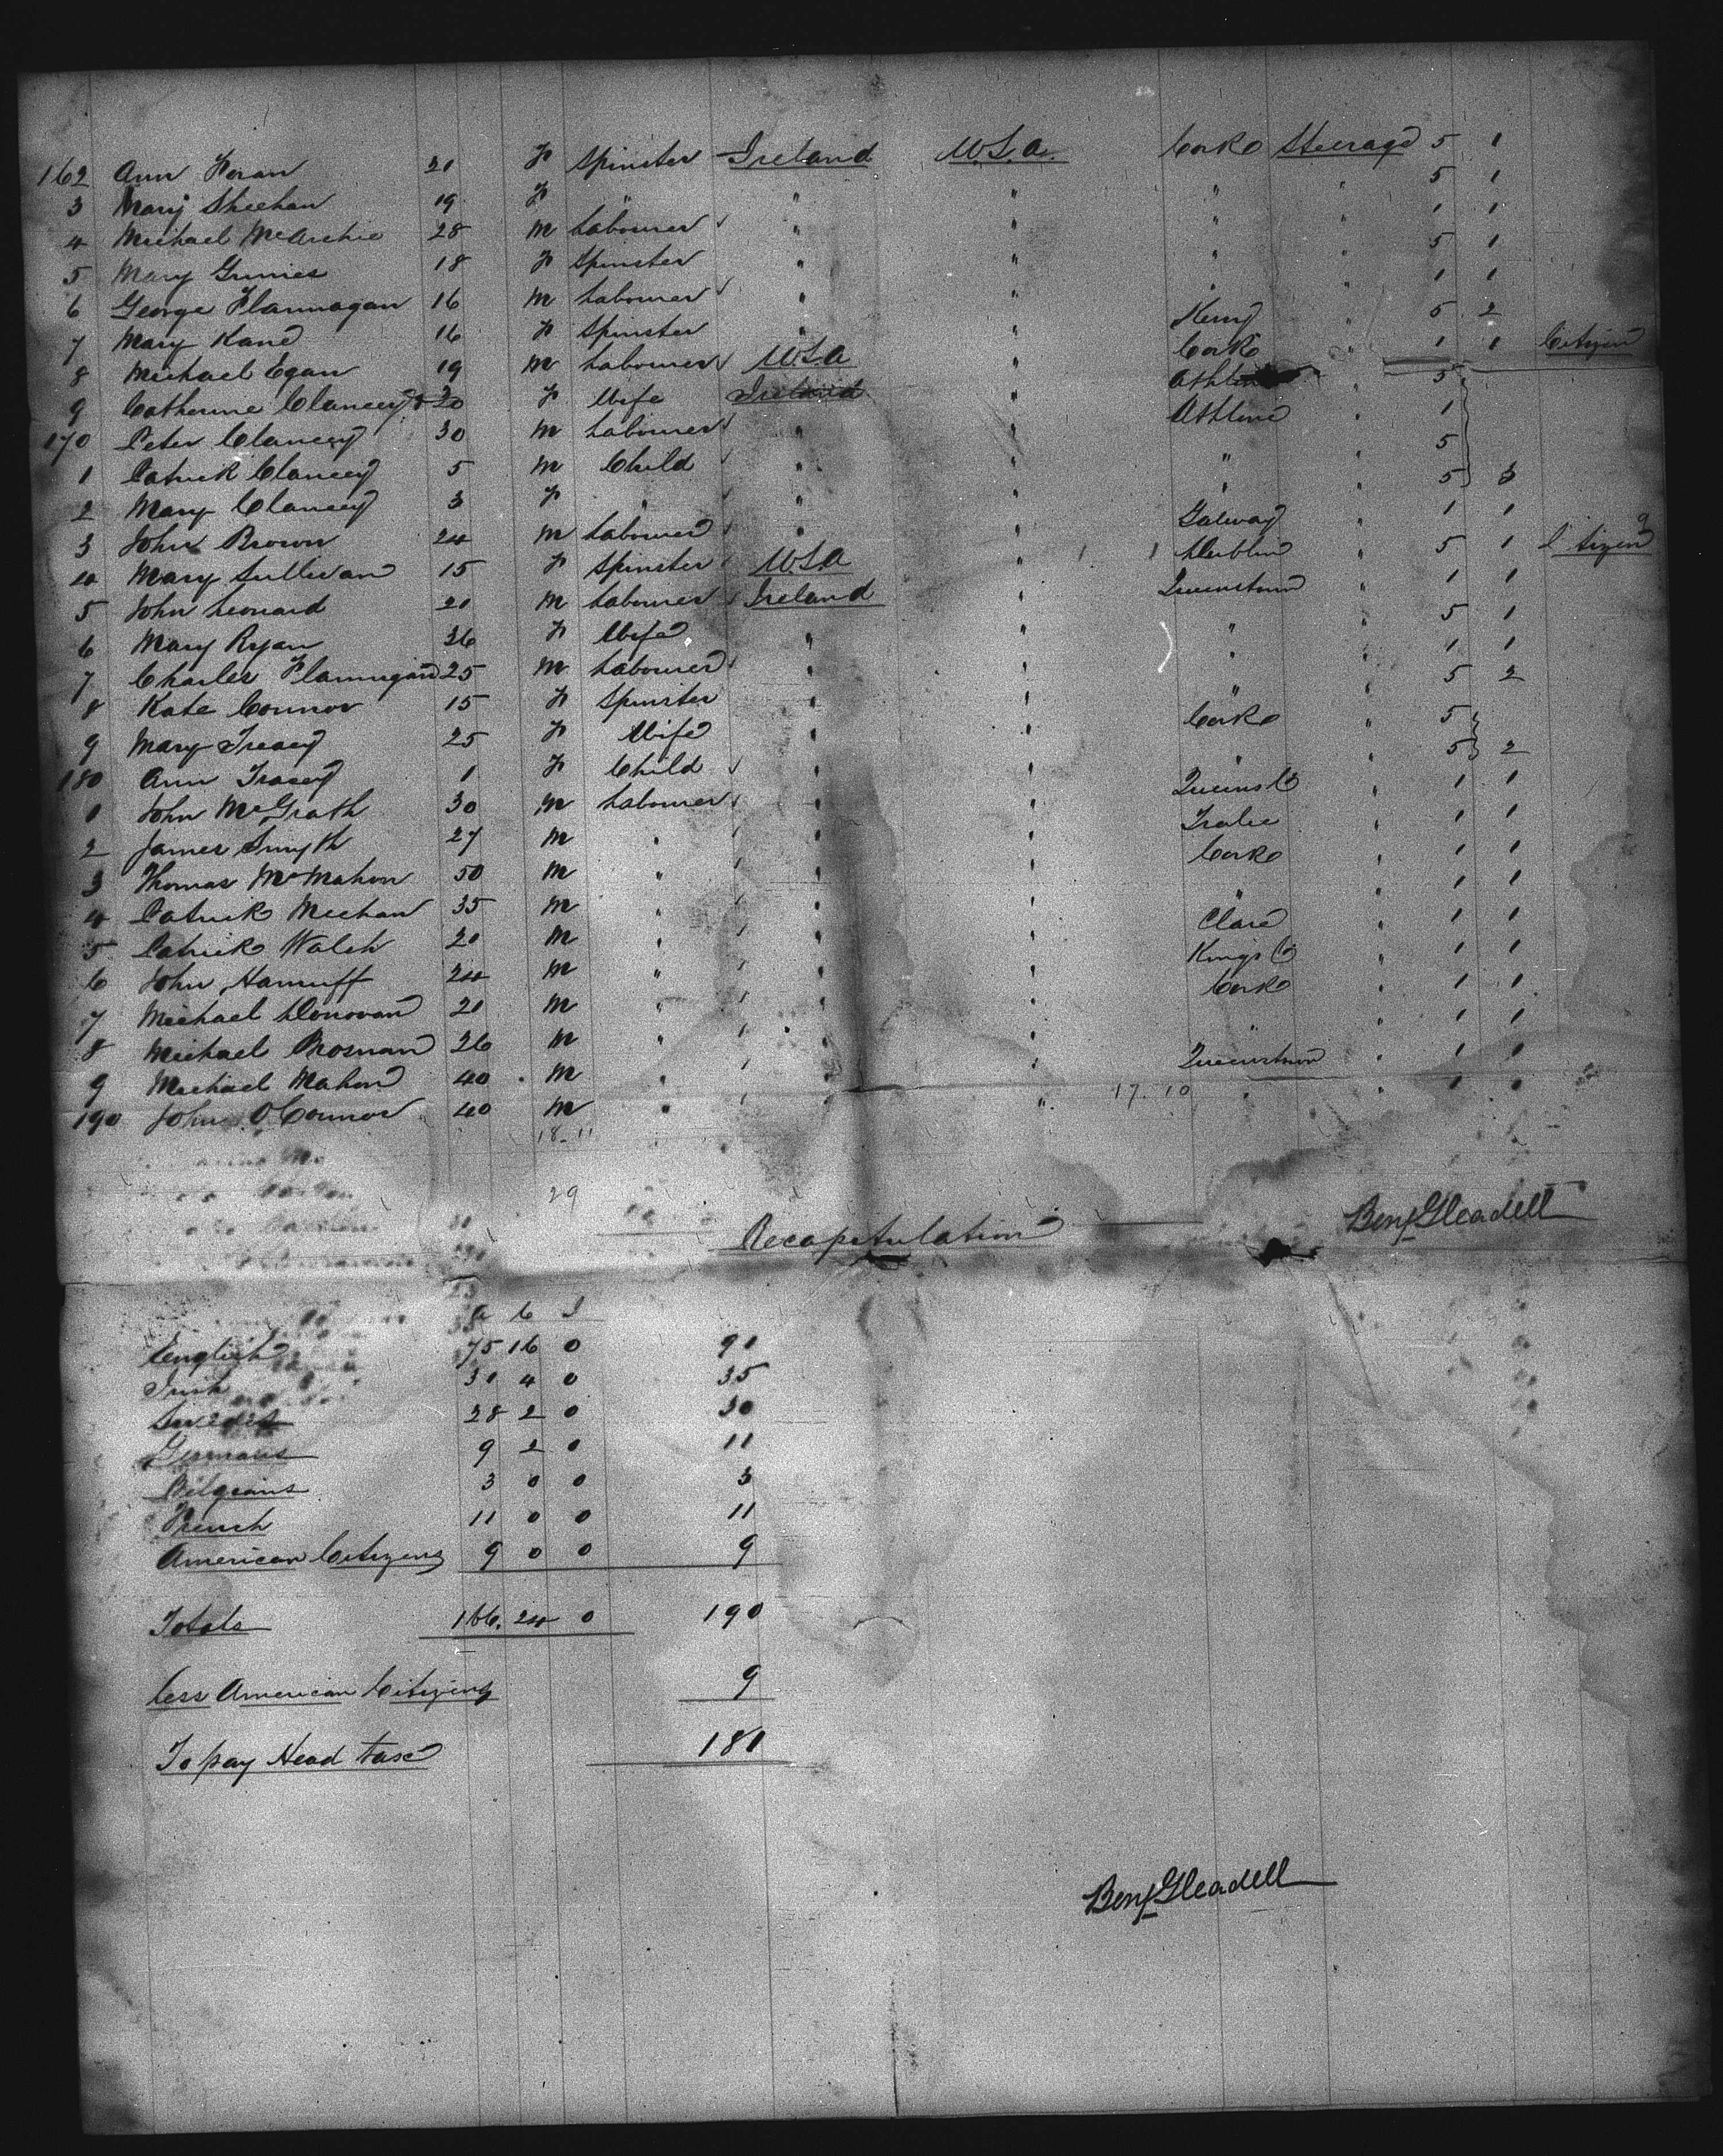 162 Ann Horan 21 F Spinster Ireland U.S.A. Cork Steerage 5 1
3 Mary Sheehan 19 F " " " " " 5 1
4 Michael McArchie 28 M Labourer " " " " 1 1
5 Mary Grimes 18 F Spinster " " " " 5 1
6 George Flannagan 16 M Labourer " " " " 1 1
7 Mary Kane 16 F Spinster " " Kerry " 5 2
8 Michael Egan 19 M Labourer U.S.A " Cork " 1 1 Citizen
9 Catherine Clancey 30 F Wife Ireland " " 5
170 Peter Clancey 30 M Labourer " " Athlone " 1
1 Patrick Clancey 5 M Child " " " " 5
2 Mary Clancey 3 F " " " " " 5 3
3 John Brown 24 M Labourer " " Galway " 1 1
4 Mary Sullivan 15 F Spinster U.S.A " Dublin " 5 1 Citizen
5 John Leonard 21 M Labourer Ireland " Queenstown " 1 1
6 Mary Ryan 36 F Wife " " " " 5 1
7 Charles Flannigan 25 M Labourer " " " " 1 1
8 Kate Connor 15 F Spinster " " " " 5 2
9 Mary Treacy 25 F Wife " " Cork " 5
180 Ann Tracey 1 F Child " " " " 5 2
1 John McGrath 30 M Labourer " " Queens Co " 1 1
2 James Smyth 27 M " " " Tralee " 1 1
3 Thomas McMahon 50 M " " " Cork " 1 1
4 Patrick Meehan 35 M " " " " " 1 1
5 Patrick Walsh 20 M " " " Clare " 1 1
6 John Hanniff 24 M " " " Kings Co " 1 1
7 Michael Donovan 21 M " " " Cork " 1 1
8 Michael Brosnan 26 M " " " " " 1 1
9 Michael Mahon 40 M " " " Queenstown " 1 1
190 John O'Connor 40 M " " " 17.10 " " 1 1
18-11
29
Recapitulation
Benj Gleadell
A C I
English 75 16 0 91
Irish 31 4 0 35
Swedes 28 2 0 30
Germans 9 2 0 11
Belgians 3 0 0 3
French 11 0 0 11
American Citizens 9 0 0 9
Totals 166. 24 0 190
Less American Citizens 9
To pay Head tax 181
Benj Gleadell